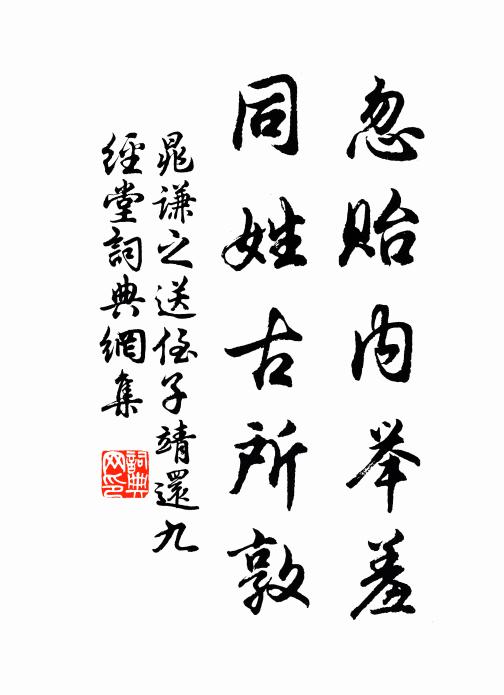 忽贻内举羞
同姓古所敦
晁谦之送侄子靖還九
經堂詞典網集
詞典
网印